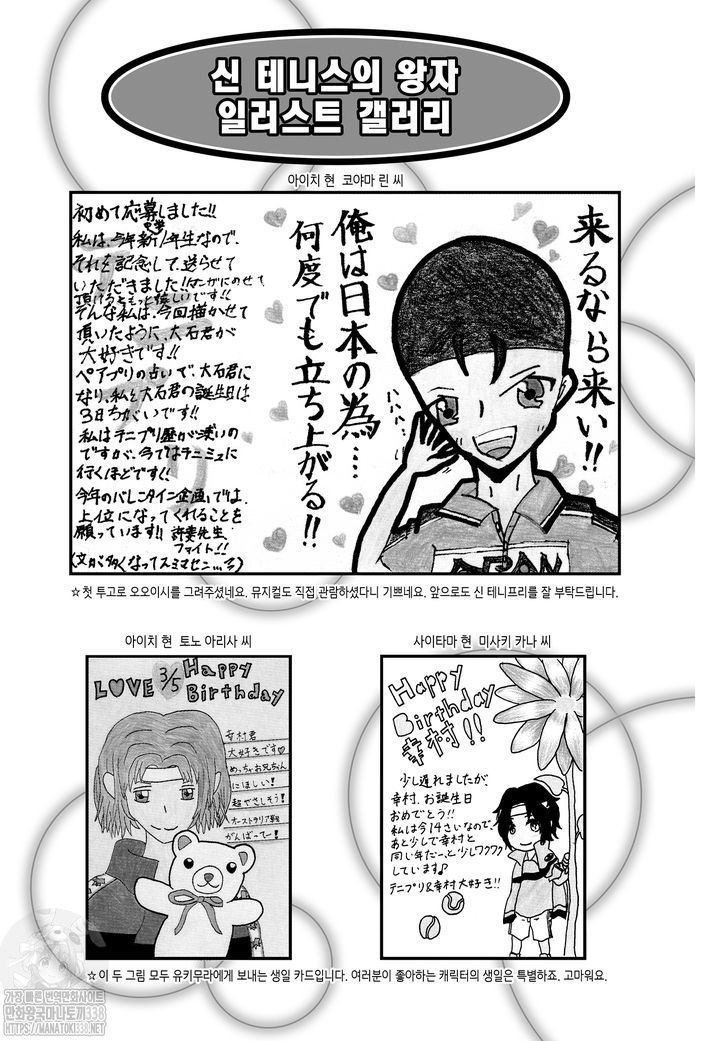 신 테니스의 왕자
일러스트 갤러리
아이치 현 코야마 린 씨
来るなら来い!!
俺は日本の為…
何度でも立ち上がる!!
初めて応募しました!!
私は、今年新中学1年生なので、
それを記念して、送らせて
いただきました!!
頂けるともっと嬉しいです!!
そんな私は、今回描かせて
頂いたように、大石君が
大好きです!!
ペアプリの占いで、大石君に
なり、私と大石君の誕生日は
3日ちがいです!!
私はテニプリ歴が浅いの
ですが、今ではテニミュに
行くほどです!!
今年のバレンタイン企画では、
上位になってくれることを
願っています!! 許斐先生
ファイト!!
(文が多くなってスミマセン…
☆첫 투고로 오오이시를 그려주셨네요. 뮤지컬도 직접 관람하셨다니 기쁘네요. 앞으로도 신 테니프리를 잘 부탁드립니다.
아이치 현 토노 아리사 씨
LOVE 3/5 Happy
Birthday
幸村君
大好きです♡
めっちゃお兄ちゃん
にほしい!
超やさしそう!
オーストラリア戦
がんばってー!
사이타마 현 미사키 카나 씨
Happy
Birthday
幸村!!
少し遅れましたが、
幸村、お誕生日
おめでとう!!
私は今14さいなので、
あと少しで幸村と
同い年だー、と少しワクワク
しています♪
テニプリ&幸村大好き!!
☆이 두 그림 모두 유키무라에게 보내는 생일 카드입니다. 여러분이 좋아하는 캐릭터의 생일은 특별하죠. 고마워요.
가장 빠른 번역만화사이트
만화왕국마나토끼338
HTTPS://MANATOKI338.NET